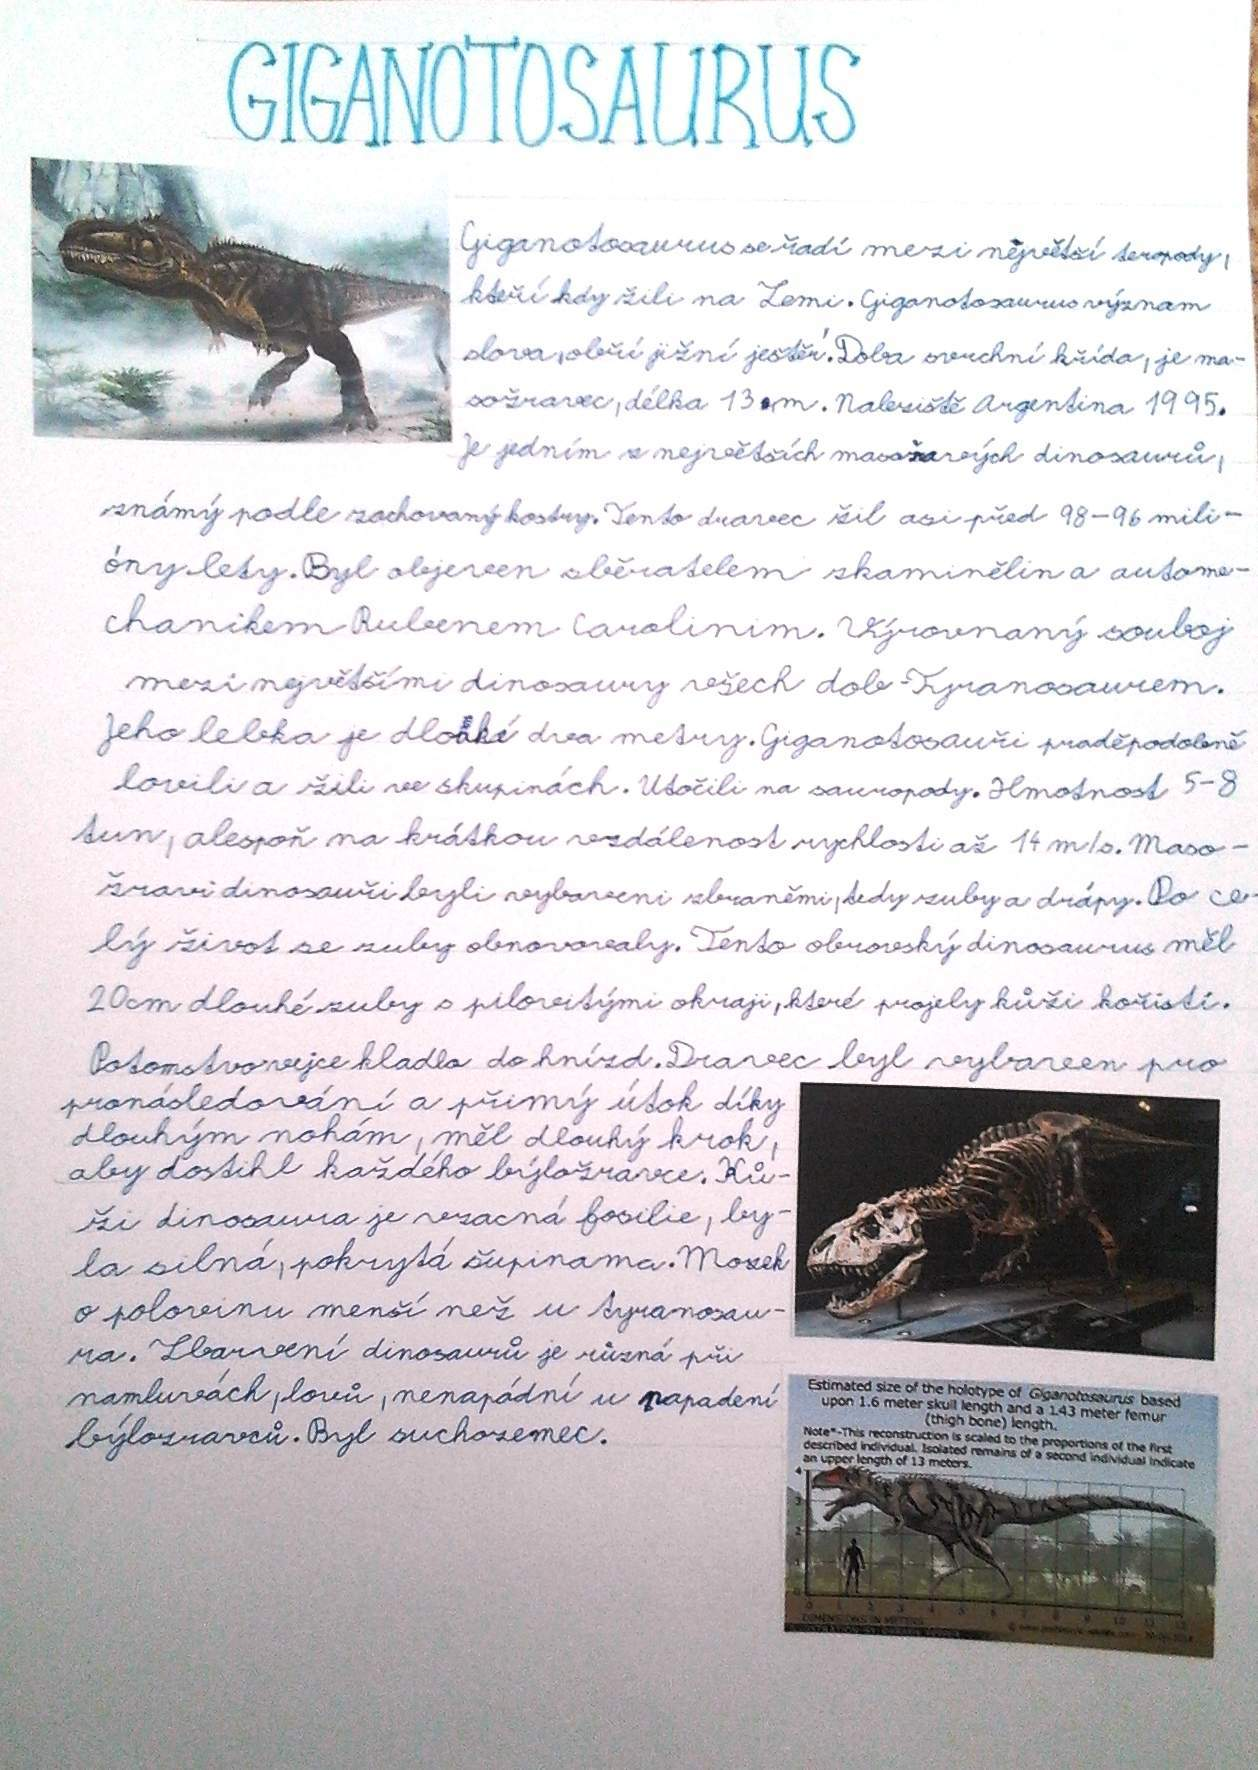 GIGANOTOSAURUS
Giganotosaurus se řadí mezi největší teropody,
kteří kdy žili na Zemi. Giganotosaurus význam
slova, obří jižní ještěr. Doba svrchní křída, je ma-
sožravec, délka 13 m. Naleziště Argentina 1995.
Je jedním z největších masožravých dinosaurů,
známý podle zachovaný kostry. Tento dravec žil asi před 98-96 mili-
óny lety. Byl objeven sběratelem zkaminělin a autome-
chanikem Rubenem Carolinim. Výrovnaný souboj
mezi největšími dinosaury všech dob-Tyranosaurem.
Jeho lebka je dlouhá dva metry. Giganotosauři praděpodobně
lovili a žili ve skupinách. Utočili na sauropody. Hmotnost 5-8
tun, alespoň na krátkou vzdálenost rychlosti až 14 m/s. Maso-
žraví dinosauři byli vybaveni zbraněmi, tedy zuby a drápy. Po ce-
lý život se zuby obnovovaly. Tento obrovský dinosaurus měl
20cm dlouhé zuby s pilovitými okraji, které projely kůži kořistí.
Potomstvo vejce kladlo do hnízd. Dravec byl vybaven pro
pronásledování a přímý útok díky
dlouhým nohám, měl dlouhý krok,
aby dostihl každého býložravce. Ků-
ži dinosaura je vzacná fosilie, by-
la silná, pokrytá šupinama. Mozek
o polovinu menší než u tyranosau-
ra. Zbarvení dinosaurů je různá při
namluvách, lovů, nenapádní u napadení
býlozravců. Byl suchozemec.
Estimated size of the holotype of Giganotosaurus based
upon 1.6 meter skull length and a 1.43 meter femur
(thigh bone) length.
Note*-This reconstruction is scaled to the proportions of the first
described individual. Isolated remains of a second individual indicate
an upper length of 13 meters.
4
3
2
1
0
0 1 2 3 4 5 6 7 8 9 10 11 12
DIMENSIONS IN METERS